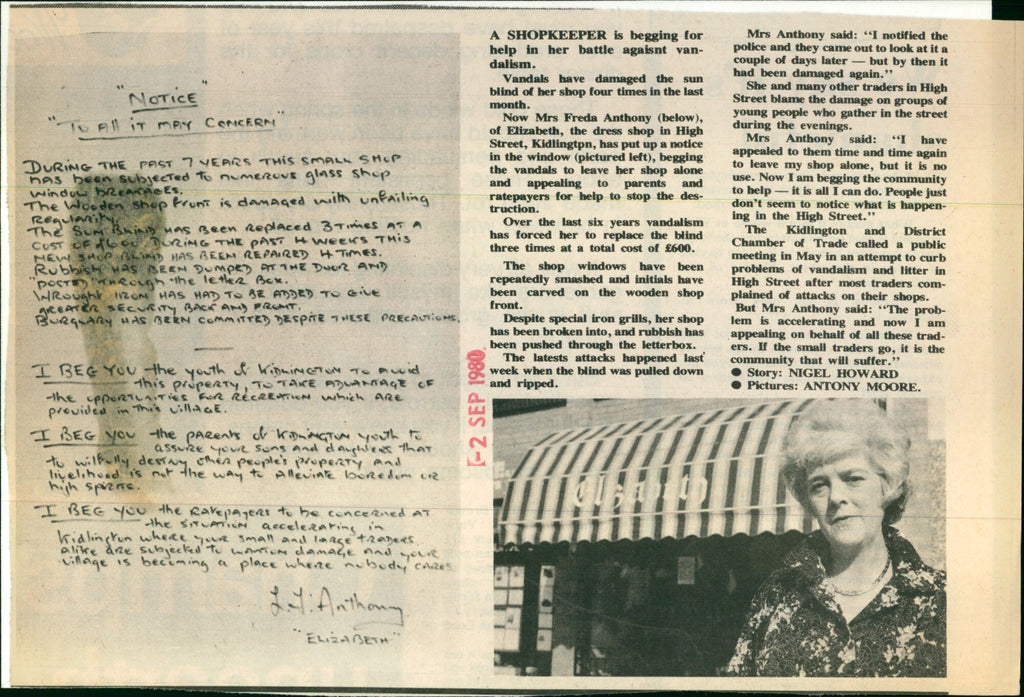 "NOTICE"
"TO All IT MAY CONCERN"
DURING THE PAST 7 YEARS THIS SMALL SHOP
HAS BEEN SUBJECTED TO NUMEROUS GLASS SHOP
WINDOW BREAKAGES.
The WOODEN SHOP FRONT IS DAMAGED WITH UNFAILING
REGULARITY.
THE SUN BLIND HAS BEEN REPLACED 3 TIMES AT A
COST OF £600 DURING THE PAST 4 WEEKS THIS
NEW SHOP BLIND HAS BEEN REPAIRED 4 TIMES.
RUBBISH HAS BEEN DUMPED AT THE DOOR AND
"POSTED" THROUGH THE LETTER BOX.
WROUGHT IRON HAS HAD TO BE ADDED TO GIVE
GREATER SECURITY BACK AND FRONT.
BURGLARY HAS BEEN COMMITTED DESPITE THESE PRECAUTIONS.
I BEG YOU the youth of KIDLINGTON TO AVOID
this PROPERTY, TO TAKE ADVANTAGE OF
the OPPORTUNITIES FOR RECREATION which ARE
provided in this VILLAGE.
I BEG YOU the PARENTS of KIDLINGTON youth to
ASSURE your SONS AND daughters that
to wilfully destroy other people's property and
livelihood is not the way to Alleviate boredom or
high spirits.
I BEG YOU the RATEPAYERS to be concerned AT
the SITUATION accelerating in
Kidlington where your small and large TRADERS
alike are subjected to WANTON damage and your
village is becoming a place where nobody CARES
Anthony
"ELIZABETH"
[-2 SEP 1980
A SHOPKEEPER is begging for
help in her battle agaisnt van-
dalism.
Vandals have damaged the sun
blind of her shop four times in the last
month.
Now Mrs Freda Anthony (below),
of Elizabeth, the dress shop in High
Street, Kidlingtpn, has put up a notice
in the window (pictured left), begging
the vandals to leave her shop alone
and appealing to parents and
ratepayers for help to stop the des-
truction.
Over the last six years vandalism
has forced her to replace the blind
three times at a total cost of £600.
The shop windows have been
repeatedly smashed and initials have
been carved on the wooden shop
front.
Despite special iron grills, her shop
has been broken into, and rubbish has
been pushed through the letterbox.
The latests attacks happened last
week when the blind was pulled down
and ripped.
Mrs Anthony said: "I notified the
police and they came out to look at it a
couple of days later — but by then it
had been damaged again."
She and many other traders in High
Street blame the damage on groups of
young people who gather in the street
during the evenings.
Mrs Anthony said: "I have
appealed to them time and time again
to leave my shop alone, but it is no
use. Now I am begging the community
to help — it is all I can do. People just
don't seem to notice what is happen-
ing in the High Street."
The Kidlington and District
Chamber of Trade called a public
meeting in May in an attempt to curb
problems of vandalism and litter in
High Street after most traders com-
plained of attacks on their shops.
But Mrs Anthony said: "The prob-
lem is accelerating and now I am
appealing on behalf of all these trad-
ers. If the small traders go, it is the
community that will suffer."
● Story: NIGEL HOWARD
● Pictures: ANTONY MOORE.